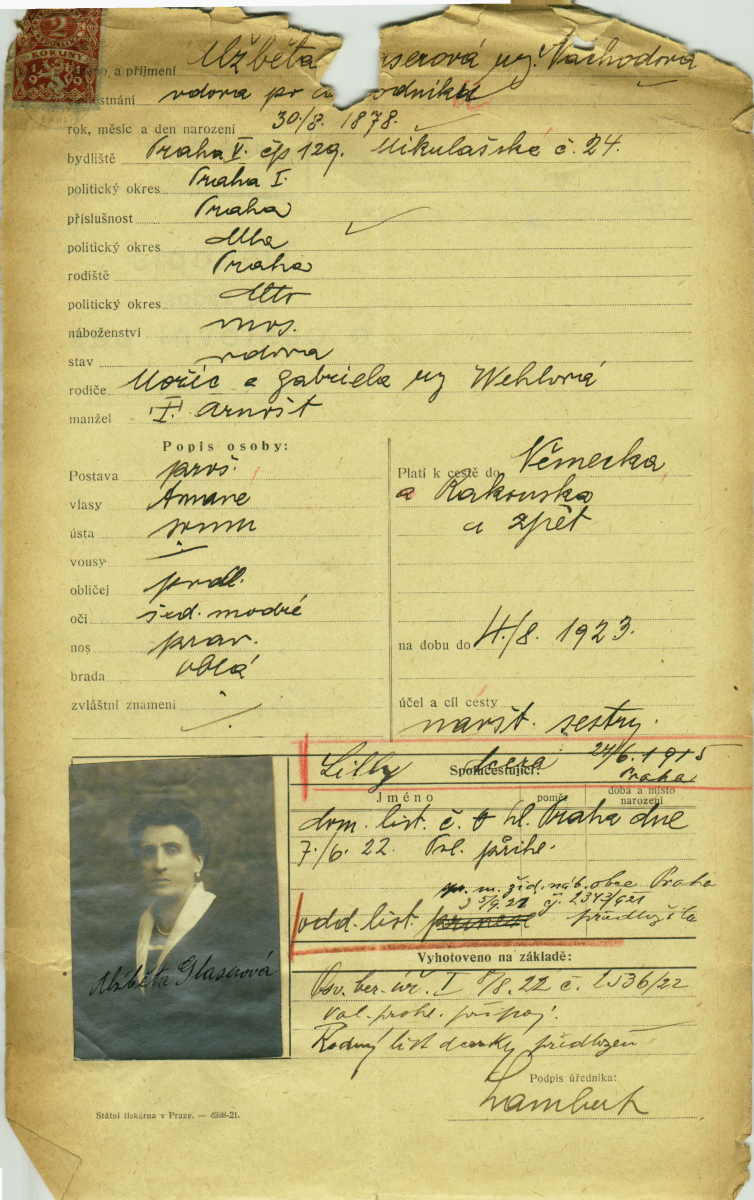 2
KORUNY
, a příjmení Alžběta serová roz. Náchodová
stnání vdova po odníku
rok, měsíc a den narození 30/8. 1878.
bydliště Praha V. čp 129. Mikulášská č. 24.
politický okres Praha I.
příslušnost Praha
politický okres dtto
rodiště Praha
politický okres dtto
náboženství mos.
stav vdova
rodiče Mořic a Gabriela roz Wehlová
manžel Arnošt
Popis osoby:
Postava pros.
vlasy tmavé
ústa
vousy
obličej podl.
oči šed. modré
nos prav.
brada oblá
zvláštní znamení
Platí k cestě do Německa
a Rakouska
a zpět
na dobu do 4./8. 1923.
účel a cíl cesty
navšt. sestry.
Lilly dcera 24/6. 1915
Praha
Spolucestující:
Jméno
poměr
doba a místo narození
dom. list. č. hl. Praha dne
7./6. 22. Pol. přihl.
žid. náb. obce Praha
5/9. 21 čj. 2373/921
odd. list. předložila
Vyhotoveno na základě:
Osv. ber. úř. I 8/8. 22 č. 2536/22
pol. přihl. připoj.
Rodný list dcerky předložen
Alžběta Glaserová
Podpis úředníka:
Lambert
Státní tiskárna v Praze. — 6598-21.